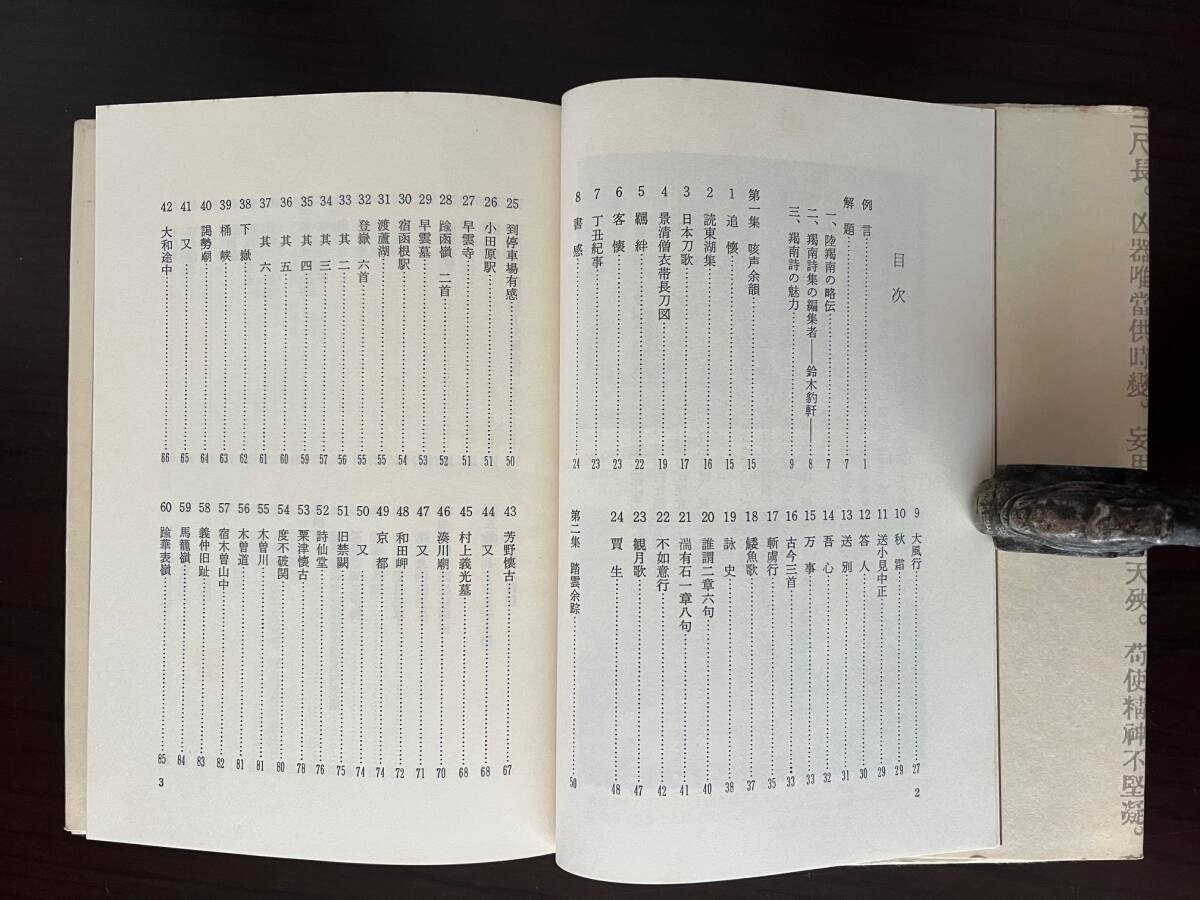 目次
例言……1
解題……7
一、陸羯南の略伝……7
二、羯南詩集の編集者——鈴木豹軒——……8
三、羯南詩の魅力……9
第一集 咳声余韻……15
1 追懐……15
2 読東湖集……16
3 日本刀歌……17
4 景清僧衣帯長刀図……19
5 羈絆……22
6 客懐……23
7 丁丑紀事……23
8 書感……24
9 大風行……27
10 秋霜……29
11 送小見中正……29
12 答人……30
13 送別……31
14 吾心……32
15 万事……33
16 古今三首……33
17 斬虜行……35
18 鯘魚歌……37
19 詠史……38
20 誰謂二章六句……40
21 湍有石一章八句……41
22 不如意行……42
23 観月歌……47
24 賈生……48
第二集 踏雲余踪……50
2
25 到停車場有感……50
26 小田原駅……51
27 早雲寺……51
28 踰函嶺 二首……52
29 早雲墓……53
30 宿函根駅……54
31 渡蘆湖……55
32 登嶽 六首……55
33 其二……56
34 其三……57
35 其四……59
36 其五……60
37 其六……61
38 下嶽……62
39 桶峡……63
40 謁勢廟……64
41 又……65
42 大和途中……66
43 芳野懐古……67
44 又……68
45 村上義光墓……68
46 湊川廟……70
47 又……71
48 和田岬……72
49 京都……74
50 又……74
51 旧禁闕……75
52 詩仙堂……76
53 粟津懐古……78
54 度不破関……80
55 木曽川……81
56 木曽道……81
57 宿木曽山中……82
58 義仲旧趾……83
59 馬籠嶺……84
60 踰華表嶺……85
3
尺長。凶器唯當供時
天殃。苟使精神不堅凝。